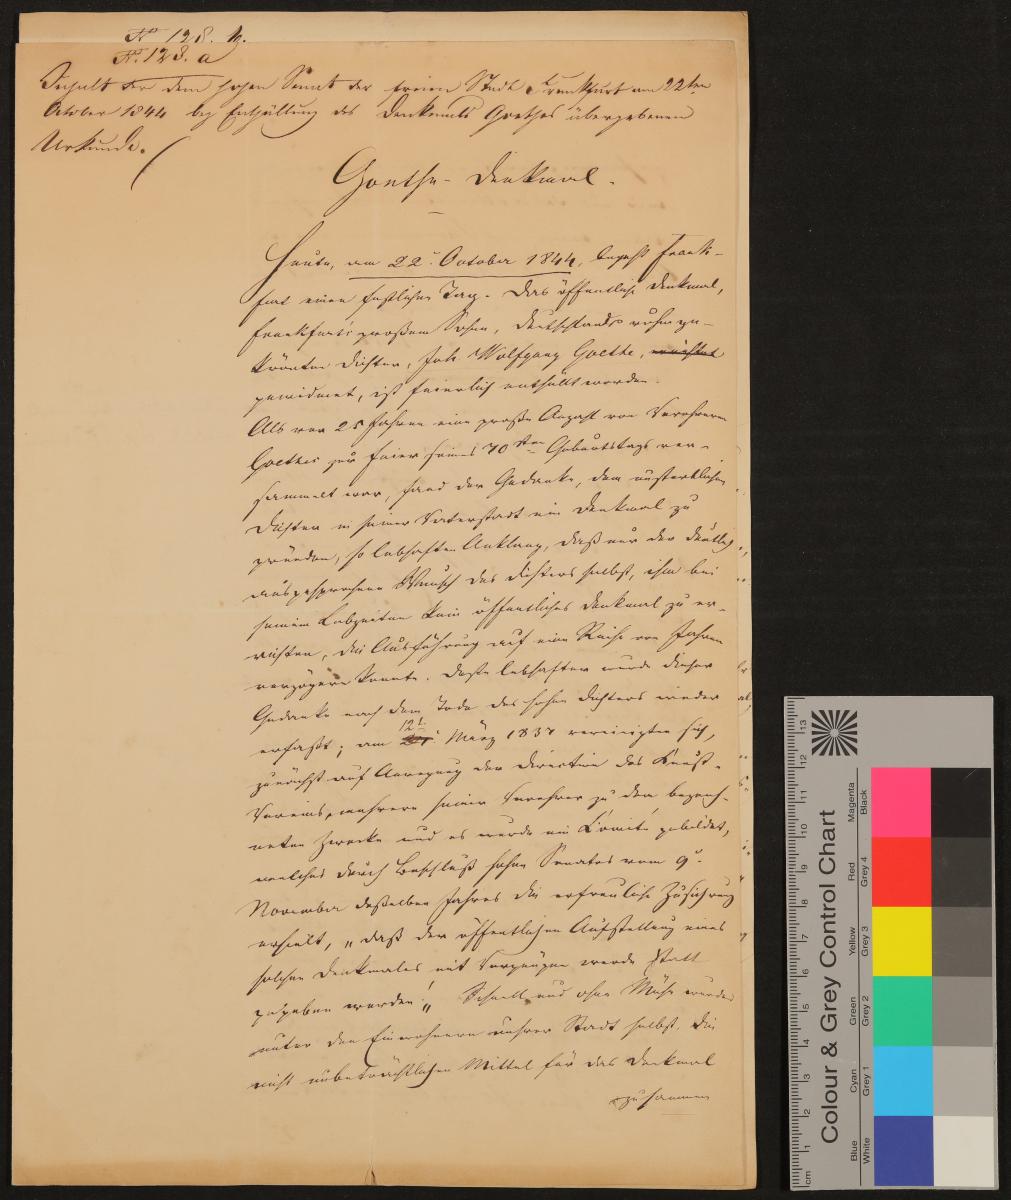 N° 128. b.
N° 128. a
Inhalt der dem hohen Senat der freien Stadt Frankfurt am 22ten
October 1844 bey Enthüllung des Denkmals Goethes übergebenen
Urkunde.
Goethe-Denkmal.
Heute, am 22. October 1844, begeht Frank-
furt einen festlichen Tag. Das öffentliche Denkmal,
Frankfurts großem Sohne, Deutschlands ruhmge-
kröntem Dichter, Joh. Wolfgang Goethe,
gewidmet, ist feierlich enthüllt worden.
Als vor 25 Jahren eine große Anzahl von Verehrern
Goethes zur Feier seines 70sten Geburtstags ver-
sammelt war, fand der Gedanke, dem unsterblichen
Dichter in seiner Vaterstadt ein Denkmal zu
gründen, so lebhaften Anklang, daß nur der deutlich
ausgesprochene Wunsch des Dichters selbst, ihm bei
seinen Lebzeiten kein öffentliches Denkmal zu er-
richten, die Ausführung auf eine Reihe von Jahren
verzögern konnte. Desto lebhafter wurde dieser
Gedanke nach dem Tode des hohen Dichters wieder
erfaßt; am 12t März 1837 vereinigten sich,
zunächst auf Anregung der Direction des Kunst-
Vereins, mehrere seiner Verehrer zu dem bezeich-
neten Zwecke und es wurde ein Comité gebildet,
welches durch Beschluß hohen Senates vom 9.
November desselben Jahres die erfreuliche Zusicherung
erhielt, „daß der öffentlichen Aufstellung eines
solchen Denkmales mit Vergnügen werde Statt
gegeben werden." Schnell und ohne Mühe wurden
unter den Einwohnern unserer Stadt selbst die
nicht unbeträchtlichen Mittel für das Denkmal
zusammen
Colour & Grey Control Chart
Blue Cyan Green Yellow Red Magenta
White Grey 1 Grey 2 Grey 3 Grey 4 Black
cm 1 2 3 4 5 6 7 8 9 10 11 12 13